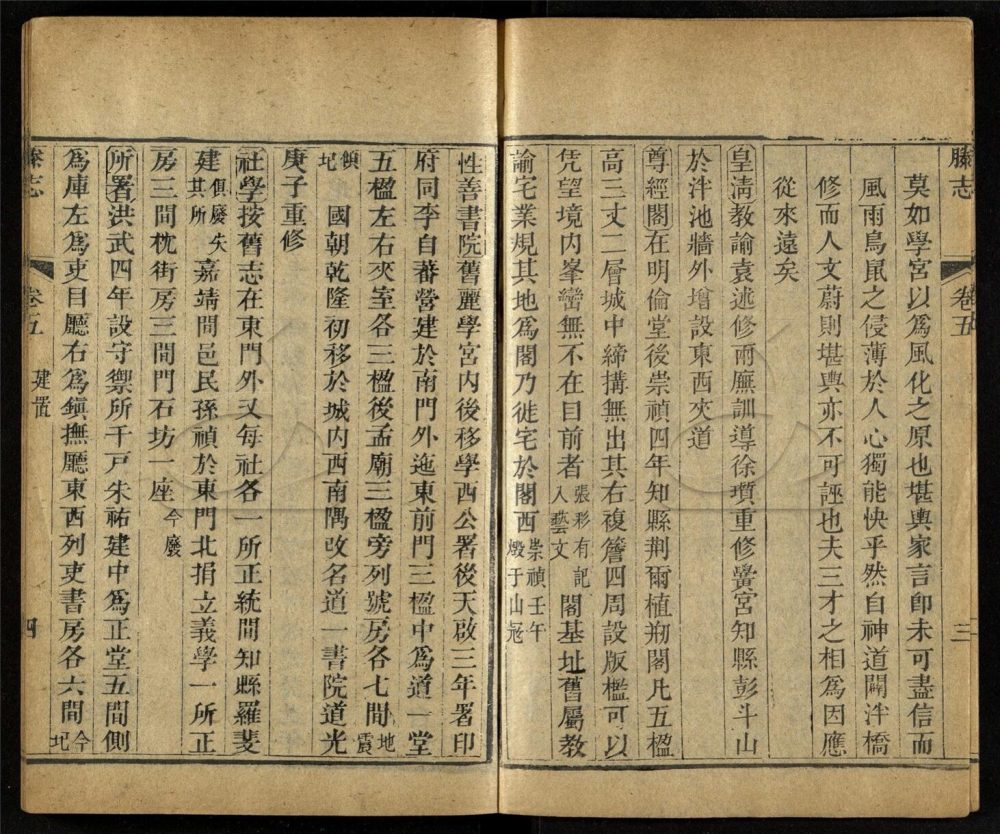 滕志
卷五
三
莫如學宮以為風化之原也堪輿家言卽未可盡信而
風雨鳥鼠之侵薄於人心獨能快乎然自神道闢泮橋
修而人文蔚則堪輿亦不可誣也夫三才之相為因應
從來遠矣
皇淸教諭袁述修兩廡訓導徐瓚重修黌宮知縣彭斗山
於泮池牆外增設東西夾道
尊經閣在明倫堂後崇禎四年知縣荆爾植剏閣凡五楹
高三丈二層城中締搆無出其右複簷四周設版檻可以
凭望境內峯巒無不在目前者張彩有記入藝文閣基址舊屬教
諭宅業規其地為閣乃徙宅於閣西崇禎壬午燬于山冦
性善書院舊麗學宮內後移學西公署後天啟三年署印
府同李自蕃營建於南門外迤東前門三楹中為道一堂
五楹左右夾室各三楹後孟廟三楹旁列號房各七間地震
傾圮國朝乾隆初移於城內西南隅改名道一書院道光
庚子重修
社學按舊志在東門外又每社各一所正統間知縣羅斐
建俱廢失其所嘉靖間邑民孫禎於東門北捐立義學一所正
房三間枕街房三間門石坊一座今廢
所署洪武四年設守禦所千戸朱祐建中為正堂五間側
為庫左為吏目廳右為鎭撫廳東西列吏書房各六間今圮
滕志
卷五
建置
四